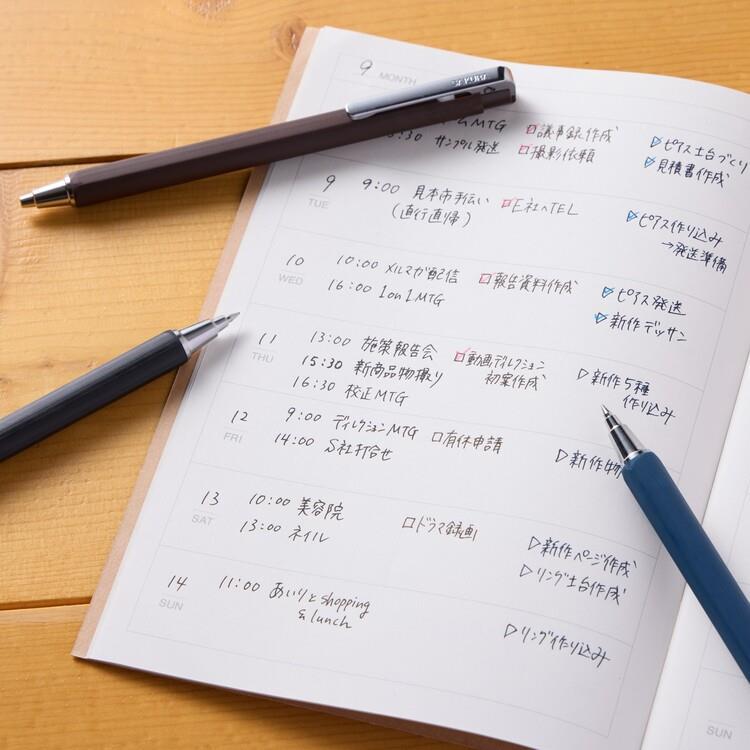 9 MONTH
SAKURA
MTG
□議事録作成
▷ピアス土台づくり
:30 サンプル発送
□撮影依頼
▷見積書作成
9 TUE
9:00 見本市手伝い
(直行直帰)
□E社へTEL
▷ピアス作り込み
→発送準備
10 WED
10:00 メルマガ配信
□報告資料作成
▷ピアス発送
16:00 1on1MTG
▷新作デッサン
11 THU
13:00 施策報告会
□動画ディレクション
初案作成
▷新作5種
作り込み
15:30 新商品物撮り
16:30 校正MTG
12 FRI
9:00 ディレクションMTG
□有休申請
▷新作物
14:00 S社打合せ
13 SAT
10:00 美容院
□ドラマ録画
▷新作ページ作成
13:00 ネイル
▷リング土台作成
14 SUN
11:00 あいりとshopping
& lunch
▷リング作り込み
SUN